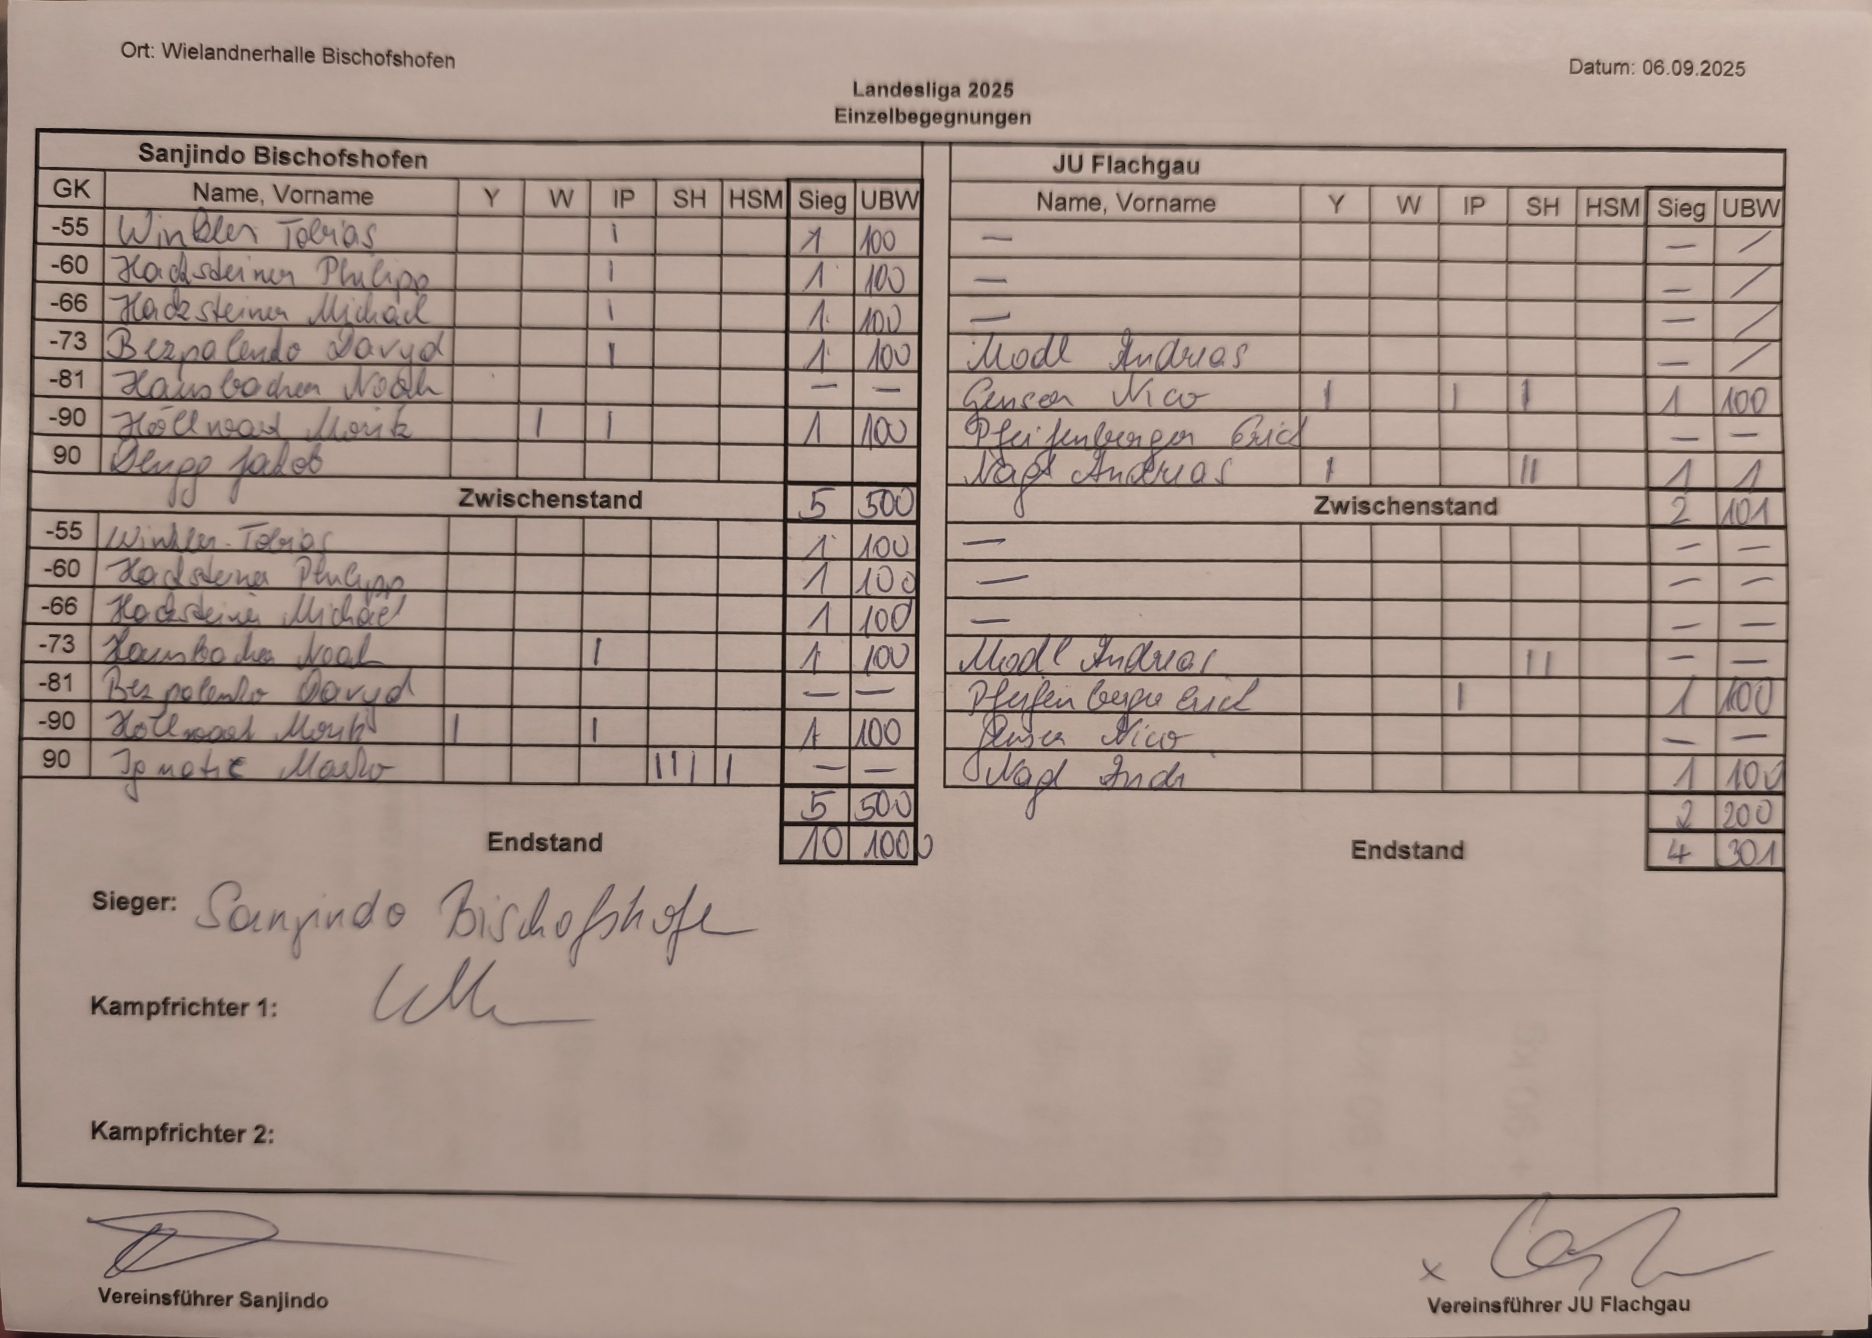 Ort: Wielandnerhalle Bischofshofen
Datum: 06.09.2025
Landesliga 2025
Einzelbegegnungen
Sanjindo Bischofshofen JU Flachgau
GK Name, Vorname Y W IP SH HSM Sieg UBW Name, Vorname Y W IP SH HSM Sieg UBW
-55 Winkler Tobias I 1 100 — — /
-60 Hochsteiner Philipp I 1 100 — — /
-66 Hochsteiner Michael I 1 100 — — /
-73 Bezpalenko Davyd I 1 100 Modl Andreas — /
-81 Hausbacher Noah — — Gensen Nico I I I 1 100
-90 Höllwart Moritz I I 1 100 Pfeifenberger Erich — —
90 Dengg Jakob Nagl Andreas I II 1 1
Zwischenstand 5 500 Zwischenstand 2 101
-55 Winkler Tobias 1 100 — — —
-60 Hochsteiner Philipp 1 100 — — —
-66 Hochsteiner Michael 1 100 — — —
-73 Hausbacher Noah I 1 100 Modl Andreas II — —
-81 Bezpalenko Davyd — — Pfeifenberger Erich I 1 100
-90 Höllwart Moritz I I 1 100 Gensen Nico — —
90 Ignatic Marko III I — — Nagl Andi 1 100
5 500 2 200
Endstand 10 1000 Endstand 4 301
Sieger: Sanjindo Bischofshofen
Kampfrichter 1:
Kampfrichter 2:
x
Vereinsführer Sanjindo Vereinsführer JU Flachgau